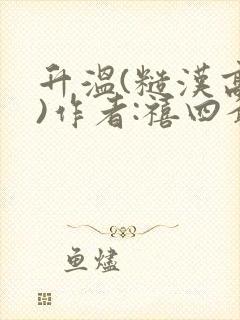 升温(糙汉高
)作者:禧四
鱼燼